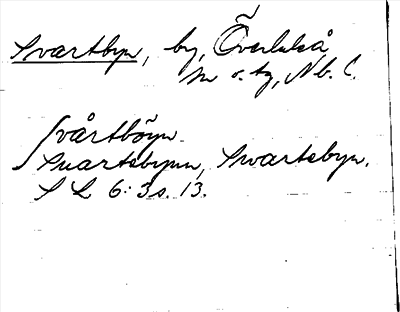 Svartbyn, by, Överluleå
sn o. tg, Nb. l.
Svårtböyn
Suartsbynn, Swartsbyn.
S L 6: 3 s. 13.